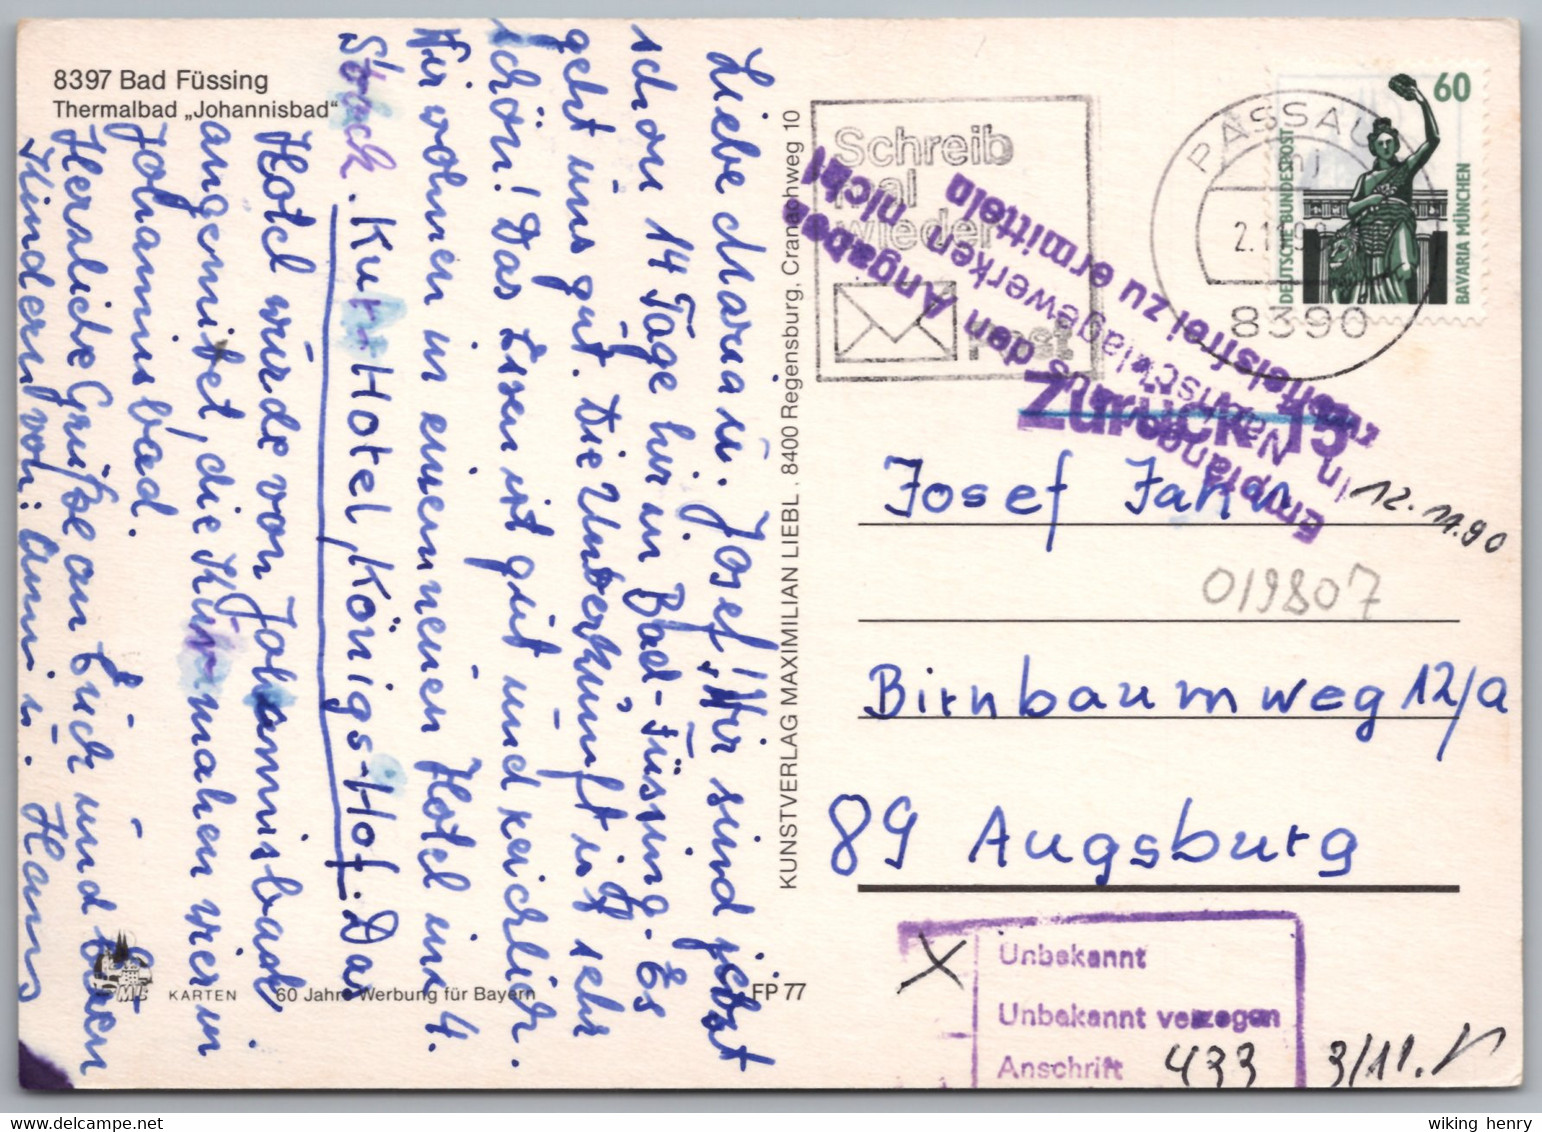 8397 Bad Füssing
Thermalbad „Johannisbad“
Liebe Maria u. Josef! Wir sind jetzt
schon 14 Tage hir in Bad-Füssing. Es
geht uns gut. Die Unterkunft ist sehr
schön! Das Essen ist gut und reichlich.
Wir wohnen in einem neuen Hotel im 4.
Stock. Kurr-Hotel, Königs-Hof. Das
Hotel würde von Johannisbad
angemitet, die Kur mahen wier in
Johannisbad.
Herzliche Grüße an Euch und Euren
Kindern von: Anni u. Hans
KUNSTVERLAG MAXIMILIAN LIEBL, 8400 Regensburg, Cranachweg 10
KARTEN 60 Jahre Werbung für Bayern FP 77
Schreib
mal
wieder
Post
PASSAU
mj
2.11.90
8390
60
DEUTSCHE BUNDESPOST
BAVARIA MÜNCHEN
Empfänger
In
Nachschlagewerken nicht
zweifelsfrei zu ermitteln
aus den Angaben
Zurück 15
12.11.90
Josef Jahn
019807
Birnbaumweg 12/a
89 Augsburg
X Unbekannt
Unbekannt verzogen
Anschrift 433 3/11.
wiking henry